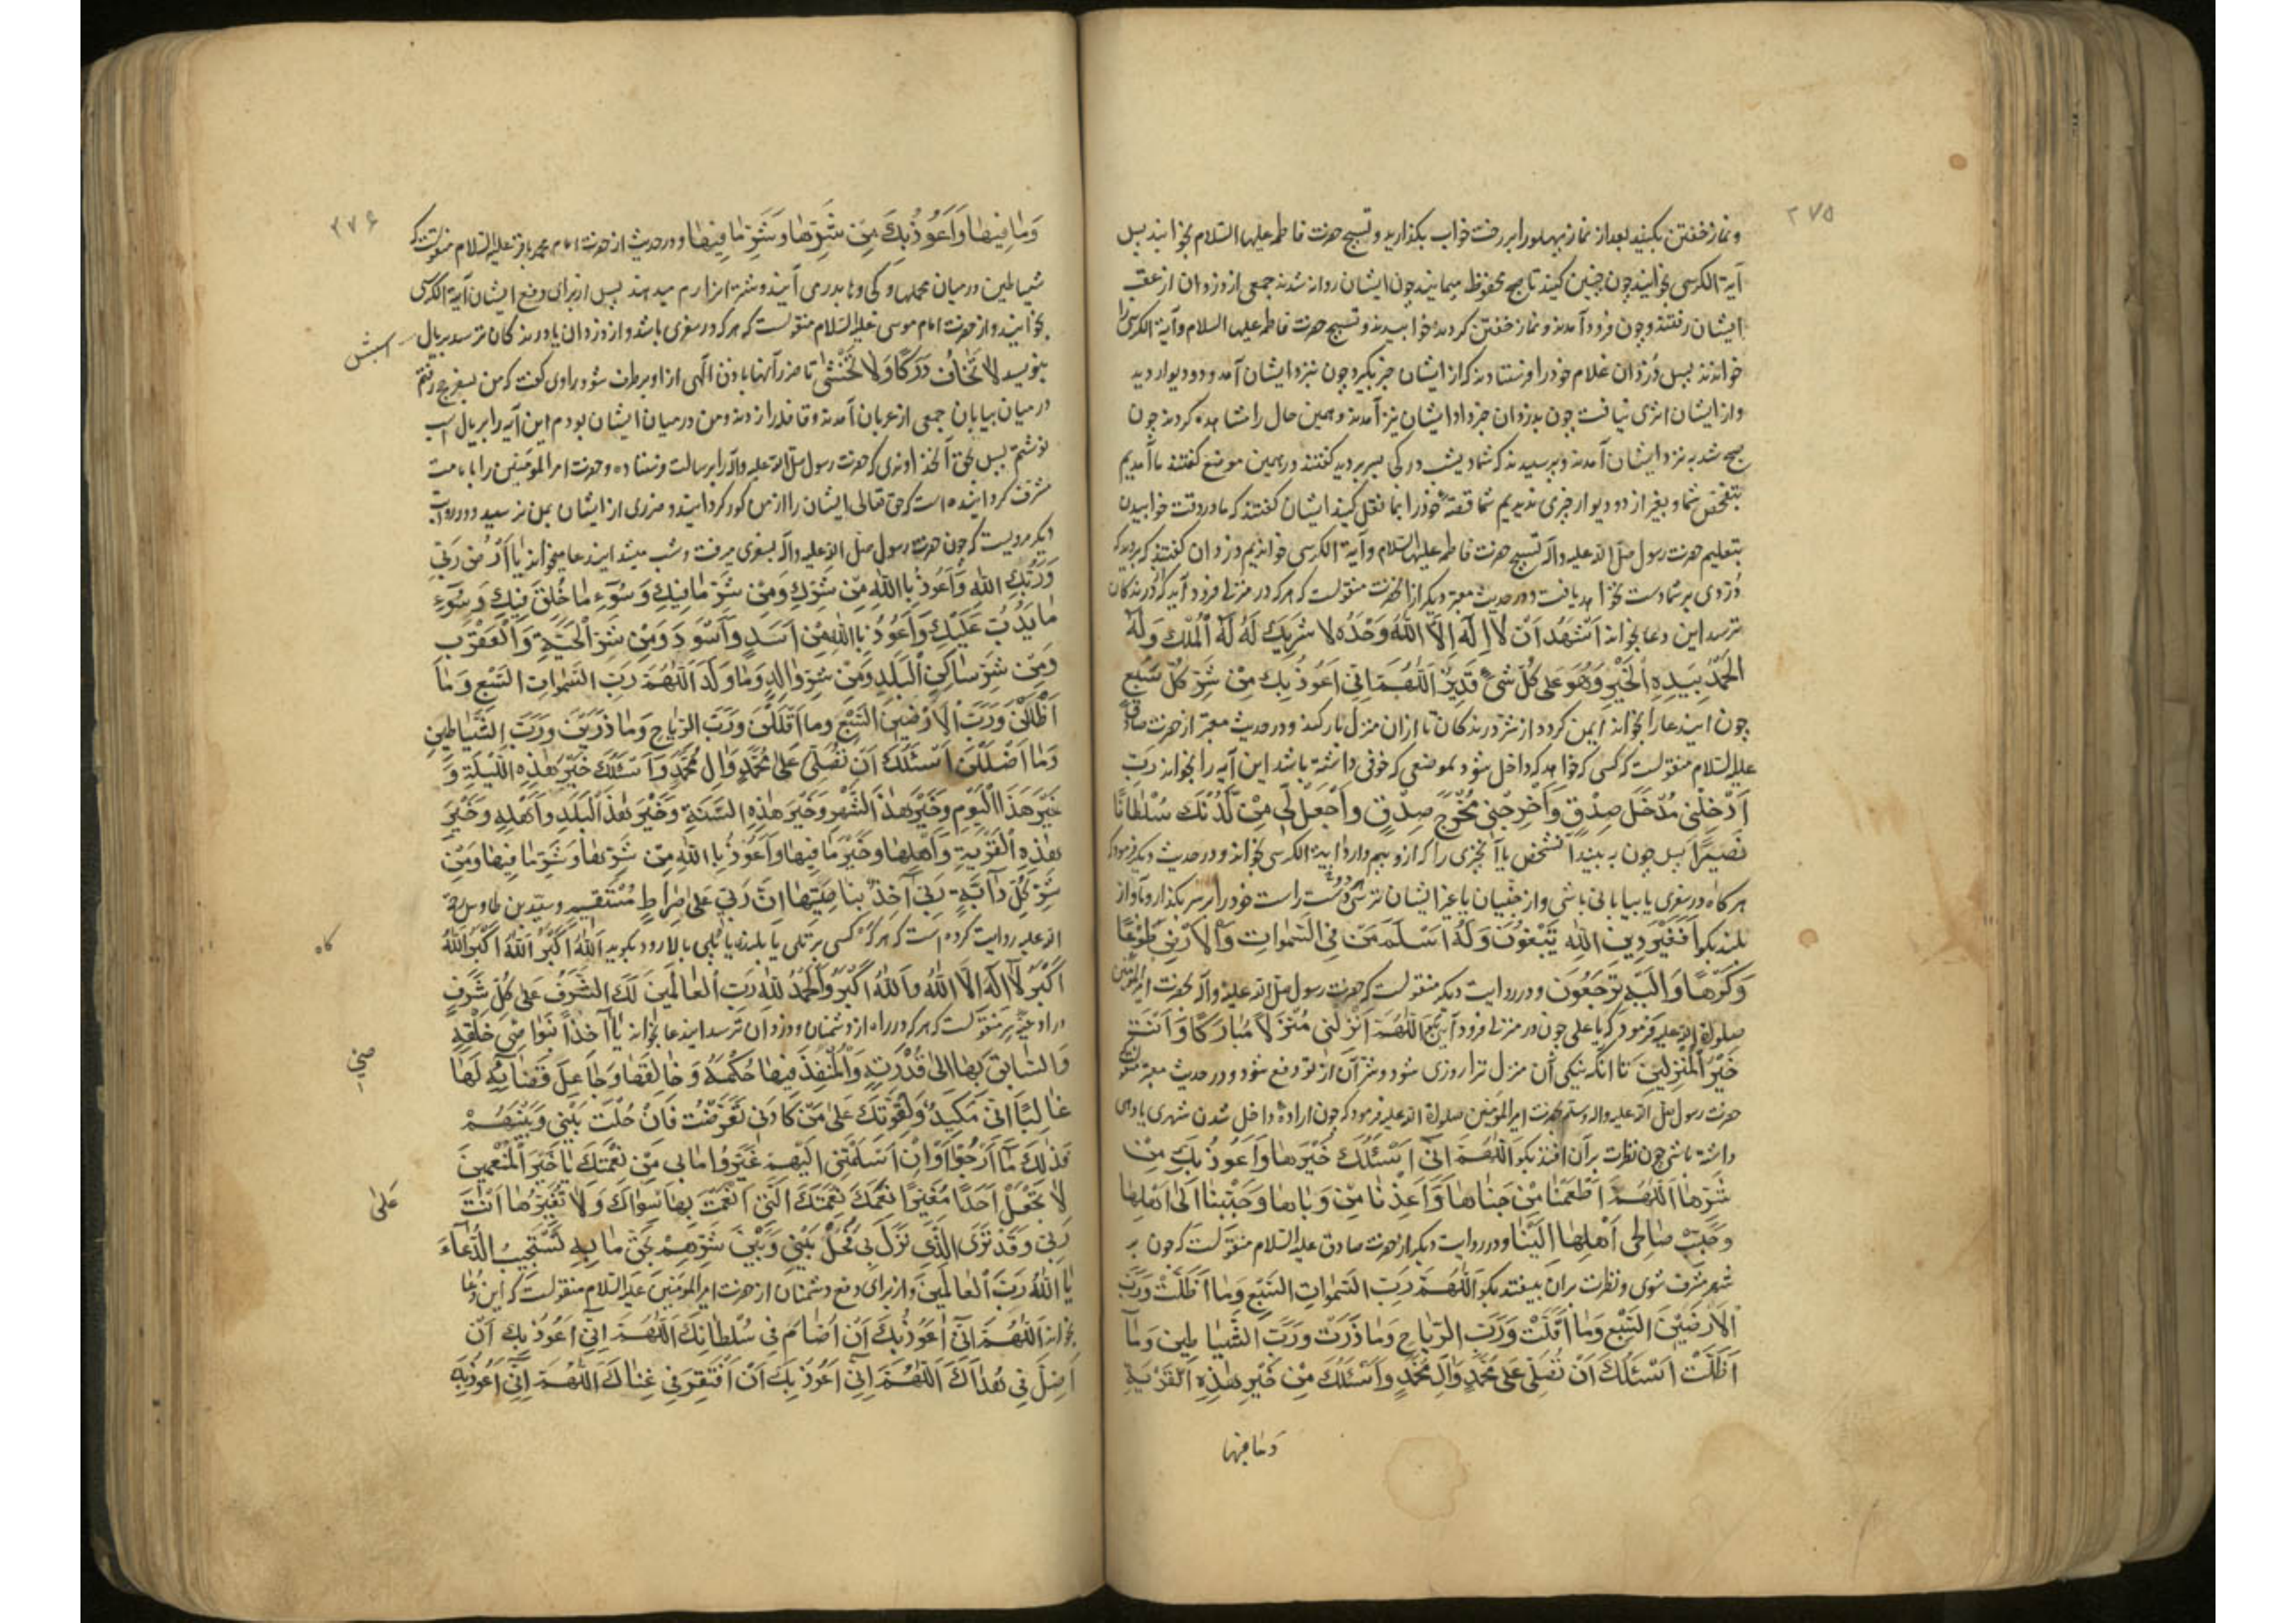 ۲۷۵
و نماز خفتن بکنید بعد از نماز پهلو را بر رخت خواب بگذارید و تسبیح حضرت فاطمه علیها السلام بخوانید پس
آیة الکرسی بخوانید چون چنین کنید تا صبح محفوظ میمانید چون ایشان روانه شدند جمعی از دزدان از عقب
ایشان رفتند و چون فرود آمدند و نماز خفتن کردند خوابیدند و تسبیح حضرت فاطمه علیها السلام و آیة الکرسی را
خواندند پس دزدان غلام خود را فرستادند که از ایشان خبر بگیرد چون نزد ایشان آمد دو دیوار دید
و از ایشان اثری نیافت چون بدزدان خبر داد ایشان نیز آمدند و همین حال را مشاهده کردند چون
صبح شد به نزد ایشان آمدند و پرسیدند که شما دیشب در کجا بسر بردید گفتند در همین موضع گفتند ما آمدیم
بتفحص شما و بغیر از دو دیوار چیزی ندیدیم شما قصهٔ خود را بما نقل کنید ایشان گفتند که ما در وقت خوابیدن
بتعلیم حضرت رسول صلی الله علیه و آله تسبیح حضرت فاطمه علیها السلام و آیة الکرسی خواندیم دزدان گفتند که بروید که
دزدی بر شما دست نخواهد یافت و در حدیث معتبر دیگر از انحضرت منقولست که هر که در منزلی فرود آید که از درندگان
ترسد این دعا بخواند اَشْهَدُ اَنْ لا اِلهَ اِلاَّ اللهُ وَحْدَهُ لا شَرِیکَ لَهُ لَهُ الْمُلْکُ وَلَهُ
الْحَمْدُ بِیَدِهِ الْخَیْرُ وَهُوَ عَلی کُلِّ شَیْءٍ قَدِیرٌ اَللّهُمَّ اِنّی اَعُوذُ بِکَ مِنْ شَرِّ کُلِّ سَبُعٍ
چون ایندعا را بخواند ایمن گردد از شر درندگان تا از ان منزل بار کند و در حدیث معتبر از حضرت صادق
علیه السلام منقولست که کسی که خواهد که داخل شود بموضعی که خوفی داشته باشد این آیه را بخواند رَبِّ
اَدْخِلْنی مُدْخَلَ صِدْقٍ وَاَخْرِجْنی مُخْرَجَ صِدْقٍ وَاجْعَلْ لی مِنْ لَدُنْکَ سُلْطاناً
نَصیراً پس چون به بیند آنشخص یا آنچیزی را که از او بیم دارد آیة الکرسی بخواند و در حدیث دیگر فرمود که
هر گاه در سفری یا بیابانی باشی و از جنیان یا غیر ایشان ترسی دست راست خود را بر سر بگذار و بآواز
بلند بگو اَفَغَیْرَ دینِ اللهِ یَبْغُونَ وَلَهُ اَسْلَمَ مَنْ فِی السَّمواتِ وَالاَرْضِ طَوْعاً
وَکَرْهاً وَاِلَیْهِ تُرْجَعُونَ و در روایت دیگر منقولست که حضرت رسول صلی الله علیه و آله بحضرت امیرالمؤمنین
صلوة الله علیه فرمود که یا علی چون در منزلی فرود آیی بگو اَللّهُمَّ اَنْزِلْنی مُنْزَلاً مُبارَکاً وَاَنْتَ
خَیْرُ الْمُنْزِلینَ تا آنکه نیکی آن منزل ترا روزی شود و شر آن از تو دفع شود و در حدیث معتبر منقولست که
حضرت رسول صلی الله علیه و اله و سلم بحضرت امیرالمؤمنین صلوة الله علیه فرمود که چون ارادهٔ داخل شدن شهری یا دهی
داشته باشی چون نظرت بر آن افتد بگو اَللّهُمَّ اِنّی اَسْئَلُکَ خَیْرَها وَاَعُوذُ بِکَ مِنْ
شَرِّها اَللّهُمَّ اَطْعِمْنا مِنْ جَناها وَاَعِذْنا مِنْ وَباها وَحَبِّبْنا اِلی اَهْلِها
وَحَبِّبْ صالِحی اَهْلِها اِلَیْنا و در روایت دیگر از حضرت صادق علیه السلام منقولست که چون بر
شهر مشرف شوی و نظرت بر ان بیفتد بگو اَللّهُمَّ رَبَّ السَّمواتِ السَّبْعِ وَما اَظَلَّتْ وَرَبَّ
الاَرَضینَ السَّبْعِ وَما اَقَلَّتْ وَرَبَّ الرِّیاحِ وَما ذَرَتْ وَرَبَّ الشَّیاطینِ وَما
اَضَلَّتْ اَسْئَلُکَ اَنْ تُصَلِّیَ عَلی مُحَمَّدٍ وَآلِ مُحَمَّدٍ وَاَسْئَلُکَ مِنْ خَیْرِ هذِهِ الْقَرْیَةِ
وما فیها
۲۷۶
وَما فیها وَاَعُوذُ بِکَ مِنْ شَرِّها وَشَرِّ ما فیها و در حدیث از حضرت امام محمد باقر علیه السلام منقولست که
شیاطین در میان محملها و کجاوها بدر می آیند و شتر انرا رم میدهند پس از برای دفع ایشان آیة الکرسی
بخوانید و از حضرت امام موسی علیه السلام منقولست که هر که در سفری باشد و از دزدان یا درندگان ترسد بر یال
اسبش
بنویسد لا تَخافُ دَرَکاً وَلا تَخْشی تا ضرر آنها باذن الهی از او برطرف شود راوی گفت که من بسفر حج رفتم
در میان بیابان جمعی از عربان آمدند و قافله را زدند و من در میان ایشان بودم این آیه را بر یال اسب
نوشتم پس بحق آنخداوندی که حضرت رسول صلی الله علیه و آله را برسالت فرستاده و حضرت امیرالمؤمنین را بامامت
مشرف گردانیده است که حق تعالی ایشان را از من کور گردانید و ضرری از ایشان بمن نرسید و در روایت
دیگر مرویست که چون حضرت رسول صلی الله علیه و اله بسفری میرفت و شب میشد ایندعا میخواند یا اَرْضُ رَبّی
وَرَبُّکِ اللهُ وَاَعُوذُ بِاللهِ مِنْ شَرِّکِ وَمِنْ شَرِّ ما فیکِ وَسُوءِ ما خُلِقَ فیکِ وَسُوءِ
ما یَدُبُّ عَلَیْکِ وَاَعُوذُ بِاللهِ مِنْ اَسَدٍ وَاَسْوَدَ وَمِنْ شَرِّ الْحَیَّةِ وَالْعَقْرَبِ
وَمِنْ شَرِّ ساکِنِ الْبَلَدِ وَمِنْ شَرِّ والِدٍ وَما وَلَدَ اَللّهُمَّ رَبَّ السَّمواتِ السَّبْعِ وَما
اَظْلَلْنَ وَرَبَّ الاَرَضینَ السَّبْعِ وَما اَقْلَلْنَ وَرَبَّ الرِّیاحِ وَما ذَرَیْنَ وَرَبَّ الشَّیاطینِ
وَما اَضْلَلْنَ اَسْئَلُکَ اَنْ تُصَلِّیَ عَلی مُحَمَّدٍ وَالِ مُحَمَّدٍ وَاَسْئَلُکَ خَیْرَ هذِهِ اللَّیْلَةِ وَ
خَیْرَ هذَا الْیَوْمِ وَخَیْرَ هذَا الشَّهْرِ وَخَیْرَ هذِهِ السَّنَةِ وَخَیْرَ هذَا الْبَلَدِ وَاَهْلِهِ وَخَیْرَ
هذِهِ الْقَرْیَةِ وَاَهْلِها وَخَیْرَ ما فیها وَاَعُوذُ بِاللهِ مِنْ شَرِّها وَشَرِّ ما فیها وَمِنْ
شَرِّ کُلِّ دابَّةٍ رَبّی آخِذٌ بِناصِیَتِها اِنَّ رَبّی عَلی صِراطٍ مُسْتَقیمٍ و سید بن طاوس رحمة
الله علیه روایت کرده است که هر گاه کسی بر تلی یا بلندی یا پلی بالا رود بگوید اَللهُ اَکْبَرُ اَللهُ اَکْبَرُ اَللهُ
گاه
اَکْبَرُ لا اِلهَ اِلاَّ اللهُ وَاللهُ اَکْبَرُ وَالْحَمْدُ لِلّهِ رَبِّ الْعالَمینَ لَکَ الشَّرَفُ عَلی کُلِّ شَرَفٍ
در ادعیهٔ سر منقولست که هر که در راه از دشمنان و دزدان ترسد ایندعا بخواند یا آخِذاً بِنَواصی خَلْقِهِ
صی
وَالسّابِقَ بِها اِلی قُدْرَتِهِ وَالْمُنْفِذَ فیها حُکْمَهُ وَخالِقَها وَجاعِلَ قَضائِهِ لَها
غالِباً اِنّی مَکیدٌ وَلِقُوَّتِکَ عَلی مَنْ کادَنی تَعَرَّضْتُ فَاِنْ حُلْتَ بَیْنی وَبَیْنَهُمْ
فَذلِکَ ما اَرْجُوا وَاِنْ اَسْلَمْتَنی اِلَیْهِمْ غَیَّرُوا ما بی مِنْ نِعْمَتِکَ یا خَیْرَ الْمُنْعِمینَ
لا تَجْعَلْ اَحَداً مُغَیِّراً نِعَمَکَ الَّتی اَنْعَمْتَ بِها سِواکَ وَلا تُغَیِّرْها اَنْتَ
عَلی
رَبّی وَقَدْ تَرَی الَّذی نَزَلَ بی فَحُلْ بَیْنی وَبَیْنَ شَرِّهِمْ بِحَقِّ ما بِهِ تَسْتَجیبُ الدُّعاءَ
یا اَللهُ رَبَّ الْعالَمینَ و از برای دفع دشمنان از حضرت امیرالمؤمنین علیه السلام منقولست که این دعا
بخواند اَللّهُمَّ اِنّی اَعُوذُ بِکَ اَنْ اُضامَ فی سُلْطانِکَ اَللّهُمَّ اِنّی اَعُوذُ بِکَ اَنْ
اَضِلَّ فی هُداکَ اَللّهُمَّ اِنّی اَعُوذُ بِکَ اَنْ اَفْتَقِرَ فی غِناکَ اَللّهُمَّ اِنّی اَعُوذُ بِکَ